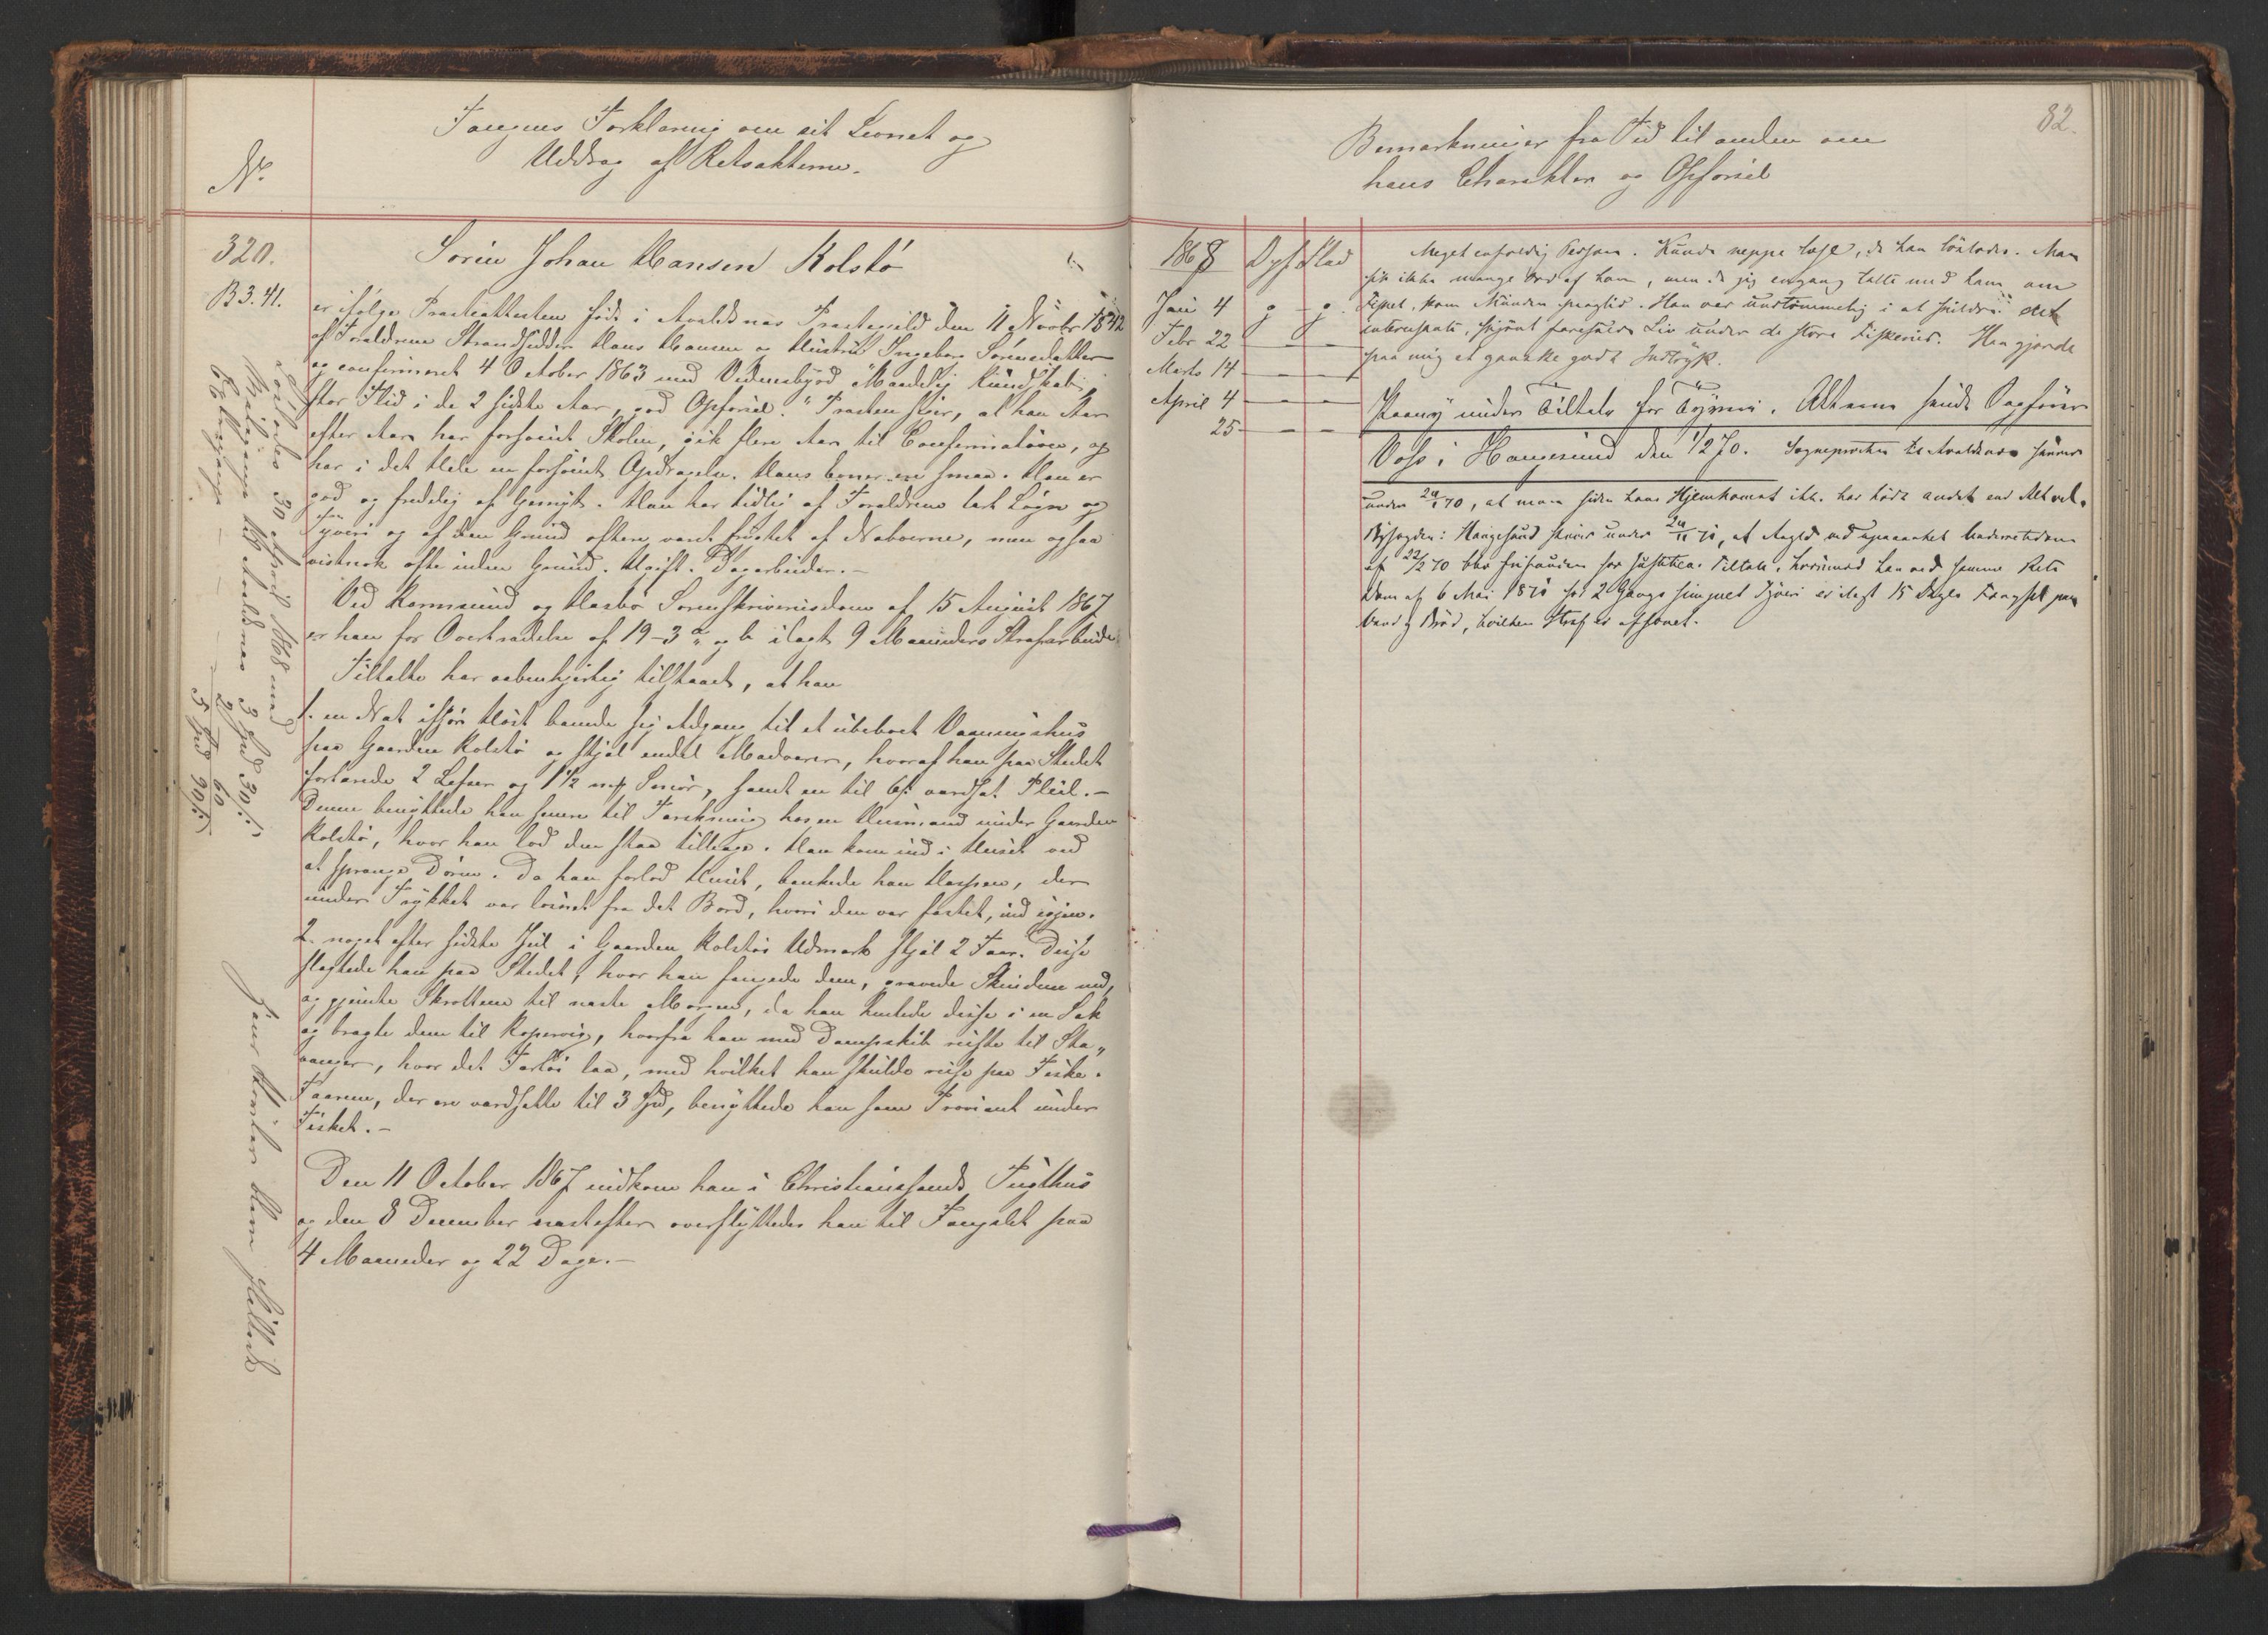 Fangens Forklaring om sit Levnet og
Uddrag af Retsakterne.
No
320.
B 3. 41.
Sørin Johan Hansen Kolstø
er ifølge Præsteattesten født i Avaldsnæs Præstegield den 11 Novbr 1842
af Forældrene Strandsidder Hans Hansen og Hustru Ingeborg Sørensdatter
og confirmeret 4 October 1863 med Vidnesbyrd "Maadelig Kundskab,
stor Flid i de 2 sidste Aar, god Opførsel." Præsten siger, at han Aar
efter Aar har forsømt Skolen, gik flere Aar til Confirmation, og
har i det Hele en forsømt Opdragelse. Hans Evner ere smaa. Han er
god og fredelig af Gemyt. Han har tidlig af Forældrene lært Løgn og
Tyveri og af den Grund ofte været frygtet af Naboerne, men ogsaa
vistnok ofte uden Grund. Ugift. Dagarbeider.-
Ved Karmsund og Hasbø Sorenskriveriesdom af 15 August 1867
er han for Overtrædelse af 19-3 a og b ilagt 9 Maaneders Strafarbeide
Tiltalte har aabenhjertig tilstaaet, at han
1. en Nat ifjor Høst banede sig Adgang til et ubeboet Vaaningshus
paa Gaarden Kolstø og stjal endel Madvarer, hvoraf han paa Stedet
fortærede 2 Lefser og 1 1/2 mk Smør, samt en til 6 s. værdsat Pleil.-
Denne benyttede han senere til Tærskning hos en Huusmand under Gaarden
Kolstø, hvor han lod den staa tilbage. Han kom ind i Huset ved
at sprænge Døren. Da han forlod Huset, bankede han Haspen, der
under Trykket var løsnet fra det Bord, hvori den var fæstet, ind igjen.
2. noget efter sidste Jul i Gaarden Kolstøs Udmark stjal 2 Faar. Disse
slagtede han paa Stedet, hvor han fangede dem, gravede Skindene ned,
og gjemte Skrottene til næste Morgen, da han hentede disse i en Sæk
og bragte dem til Kopervig, hvorfra han med Dampskib reiste til Sta„
vanger, hvor det Fartøi laa, med hvilket han skulde reise paa Fiske.
Faarene, der ere værdsatte til 3 Spd, benyttede han som Proviant under
Fisket.-
Den 11 October 1867 indkom han i Christianssands Tugthus
og den 8 December næstefter overflyttedes han til Fængslet paa
4 Maaneder og 22 Dage.-
Løslodes 30 April 1868 med
Reisepenge til Avaldsnæs 3 Spd 30 s.
2 - 60
5 Spd 90 s.
82.
Bemærkninger fra Tid til anden om
hans Charakter og Opførsel
1868
Opf. Flid
Jan 4 g - g.
Febr. 22 - -
Marts 14 - -
April 4 - -
25 - -
Meget enfoldig Person. Kunde neppe læse, da han løslodes. Man
fik ikke mange Ord af ham, men da jeg engang talte med ham om
Fisket, kom Munden paaglid. Han var uudtømmelig i at skildre det
interessante, skjønt farefulde Liv under de store Fiskerier. Han gjorde
paa mig et ganske godt Indtryk.
Paany under Tiltale for Tyveri. Akterne sendt Fogden
Voss i Haugesund den 1/2 70. Sognepræsten til Avaldsnæs skriver
under 24/1 70, at man siden hans Hjemkomst ikke har hørt andet end Alt vel.
Byfogden i Haugesund skriver under 24/11 71, at
af 22/2 70 blev frifunden for Justitiens Tiltale, hvorimod han ved samme Rets
Dom af 6 Mai 1871 for 2 Gange simpelt Tyveri er ilagt 15 Dages Fængsel paa
Vand og Brød, hvilken Straf er afsonet.